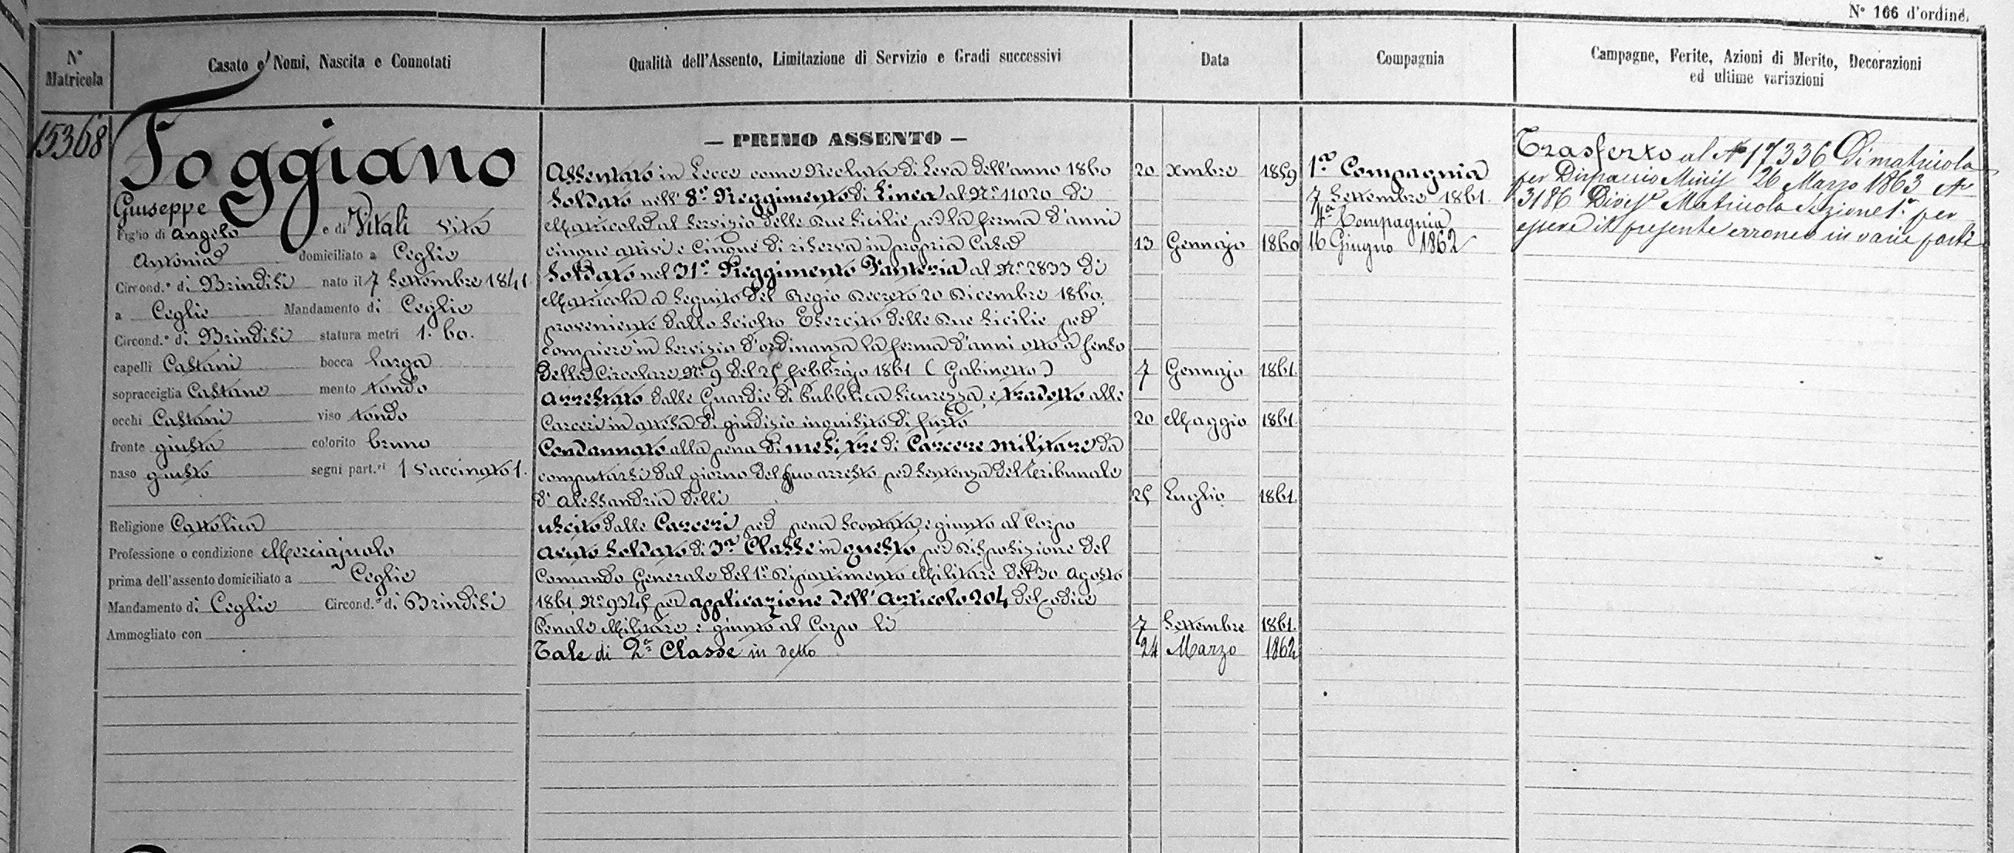 N° 166 d'ordine.
N° Matricola
Casato e Nomi, Nascita e Connotati
Qualità dell'Assento, Limitazione di Servizio e Gradi successivi
Data
Compagnia
Campagne, Ferite, Azioni di Merito, Decorazioni
ed ultime variazioni
15368
Foggiano
Giuseppe
Figlio di Angelo e di Vitali Vita
Antonia domiciliato a Ceglie
Circond.° di Brindisi nato il 7 Settembre 1841
a Ceglie Mandamento di Ceglie
Circond.° di Brindisi statura metri 1. 60.
capelli Castani bocca larga
sopracciglia Castane mento tondo
occhi Castani viso tondo
fronte giusta colorito bruno
naso giusto segni part.ri 1 Vaccinato 1.
Religione Cattolica
Professione o condizione Merciajuolo
prima dell'assento domiciliato a Ceglie
Mandamento di Ceglie Circond.° di Brindisi
Ammogliato con
— PRIMO ASSENTO —
Assentato in Lecce come Recluta di Leva dell'anno 1860 20 Xmbre 1859
Soldato nell' 8° Reggimento di Linea al N° 11020 di
Matricola al Servizio delle Due Sicilie per la ferma d'anni
cinque attivi e cinque di riserva in propria Casa 13 Gennajo 1860
Soldato nel 31° Reggimento Fanteria al N° 2833 di
Matricola a Seguito del Regio Decreto 20 Dicembre 1860.
proveniente dallo Sciolto Esercito delle Due Sicilie per
compiere in Servizio d'ordinanza la ferma d'anni otto a senso
della Circolare N° 9 del 25 febbrajo 1861 (Gabinetto) 7 Gennajo 1861
Arrestato dalle Guardie di Pubblica Sicurezza, e tradotto alle
Carceri in attesa di giudizio inquisito di furto 20 Maggio 1861
Condannato alla pena di mesi tre di Carcere militare da
computarsi dal giorno del suo arresto per Sentenza del Tribunale
d'Alessandria delli 25 Luglio 1861
uscito dalle Carceri per pena Scontata e giunto al Corpo
Avuto Soldato di 3a Classe in questo per disposizione del
Comando Generale del 1° Dipartimento Militare del 30 Agosto
1861 N° 9345 per applicazione dell'Articolo 204 del Codice
Penale Militare e giunto al Corpo li 7 Settembre 1861
Tale di 2a Classe in detto 24 Marzo 1862
1a Compagnia
7 Settembre 1861.
4a Compagnia
16 Giugno 1862
Trasferto al N° 17336 Di matricola
per Dispaccio Minis 26 Marzo 1863 N°
3186 Matricola Sezione 1a per
essere il presente erroneo in varie parti